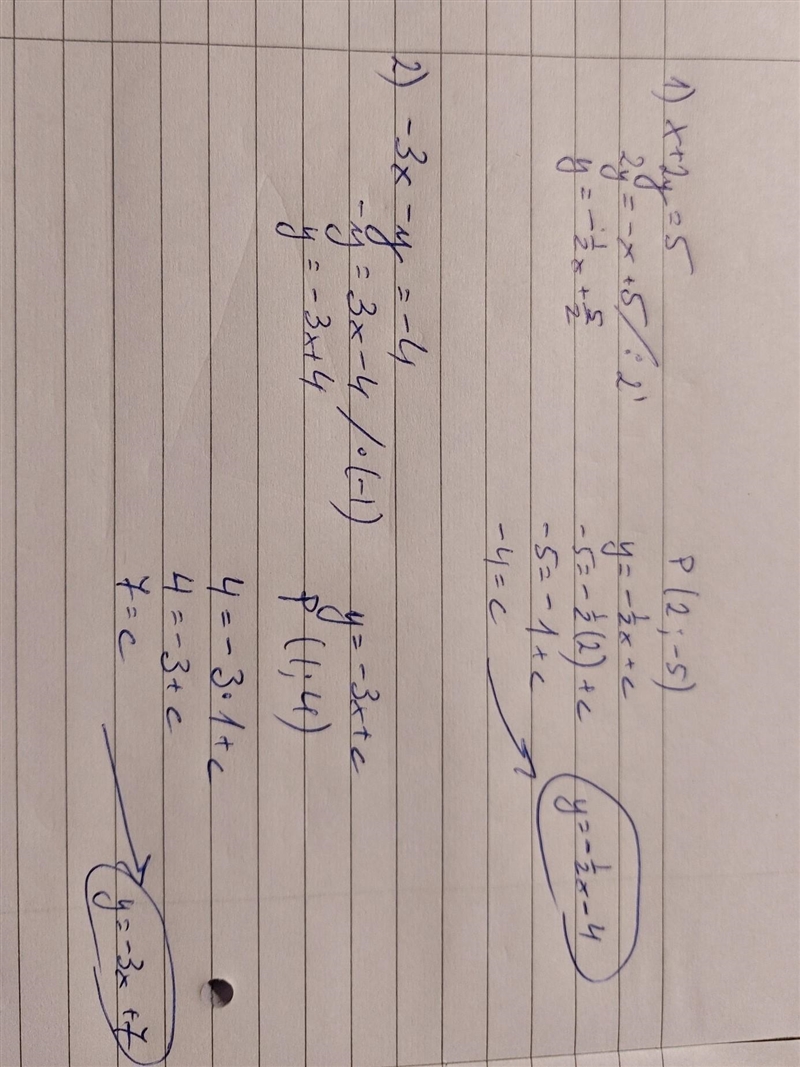 1) x+2y=5
2y = -x +5 /:2
y = -1/2 x + 5/2
P(2;-5)
y = -1/2 x + c
-5 = -1/2 (2) + c
-5 = -1 + c
-4 = c
y = -1/2 x - 4
2) -3x - y = -4
-y = 3x - 4 / · (-1)
y = -3x+4
y = -3x + c
P(1;4)
4 = -3·1 + c
4 = -3 + c
7 = c
y = -3x + 7